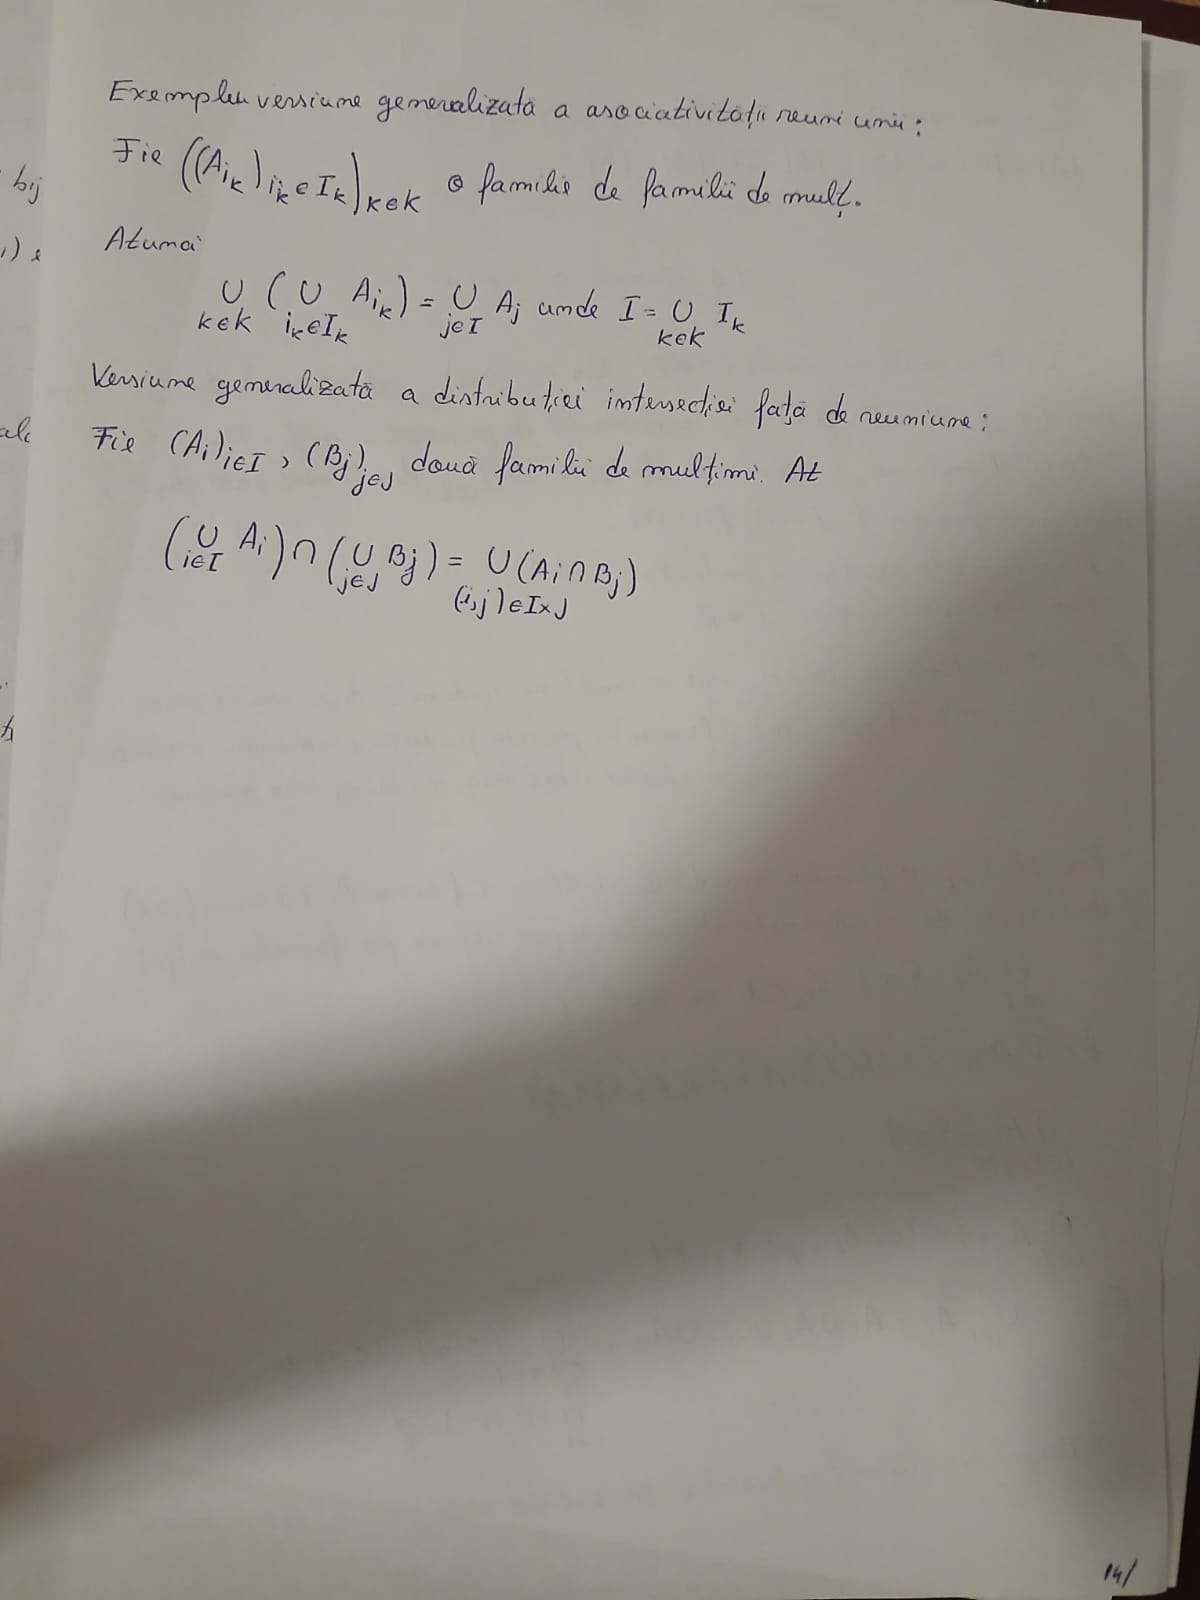 bij
Exemplu versiune generalizată a asociativității reuniunii:
Fie ((A_{i_k})_{i_k∈I_k})_{k∈K} o familie de familii de mulț.
Atunci
∪_{k∈K} (∪_{i_k∈I_k} A_{i_k}) = ∪_{j∈I} A_j unde I = ∪_{k∈K} I_k
Versiune generalizată a distribuției intersecției față de reuniune:
Fie (A_i)_{i∈I}, (B_j)_{j∈J} două familii de mulțimi. At
(∪_{i∈I} A_i) ∩ (∪_{j∈J} B_j) = ∪_{(i,j)∈I×J} (A_i ∩ B_j)
14/